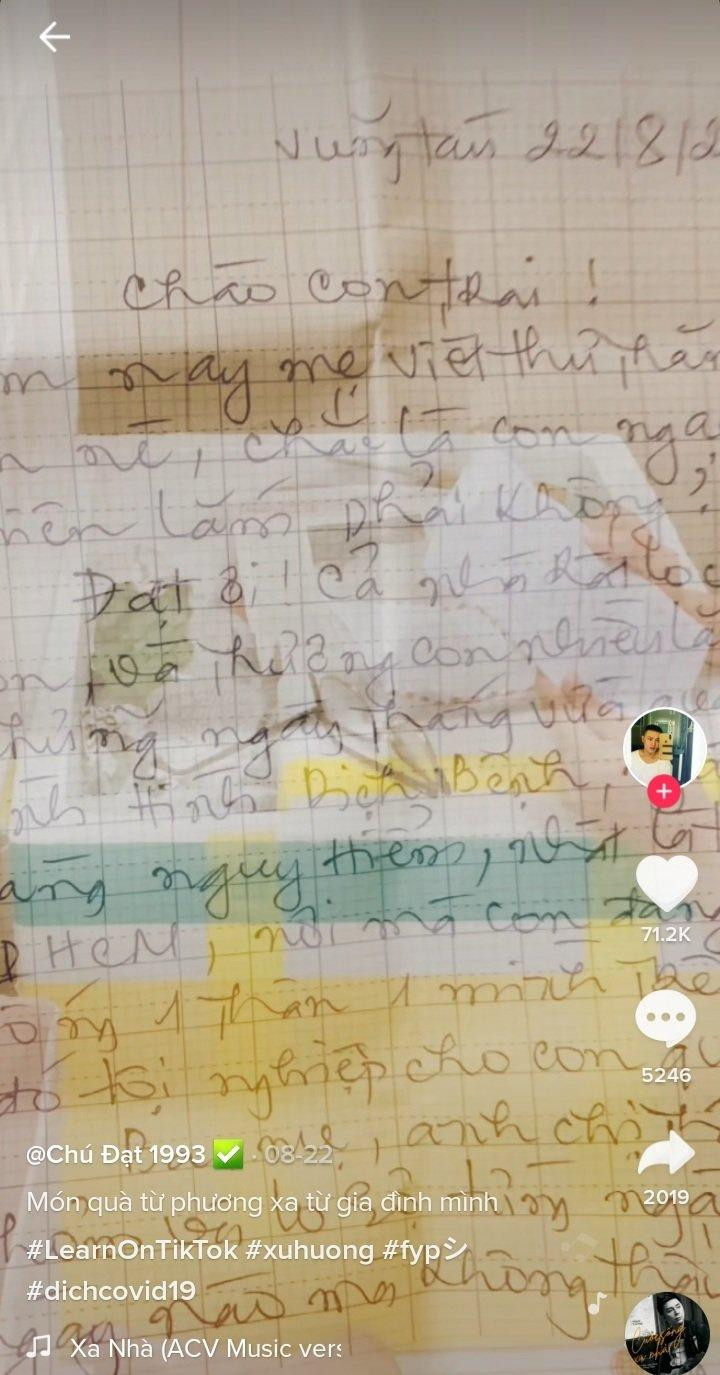 Vũng tàu 22/8/2
chào con trai !
m nay mẹ viết thư thăm
n nè, chắc là con ngạ
nhiên lắm phải không ?
Đạt ơi ! Cả nhà rất lo
on, và thương con nhiều lắ
những ngày tháng vừa qua
nh hình Dịch Bệnh,
ăng nguy hiểm, nhất là
P HCM, nơi mà con đang
ống 1 thân 1 mình thế
đó tội nghiệp cho con qu
mẹ, anh chị
từng ngà
ngày nào mà không thấy
71.2K
5246
2019
@Chú Đạt 1993 ✅ · 08-22
Món quà từ phương xa từ gia đình mình
#LearnOnTikTok #xuhuong #fypシ
#dichcovid19
Xa Nhà (ACV Music vers